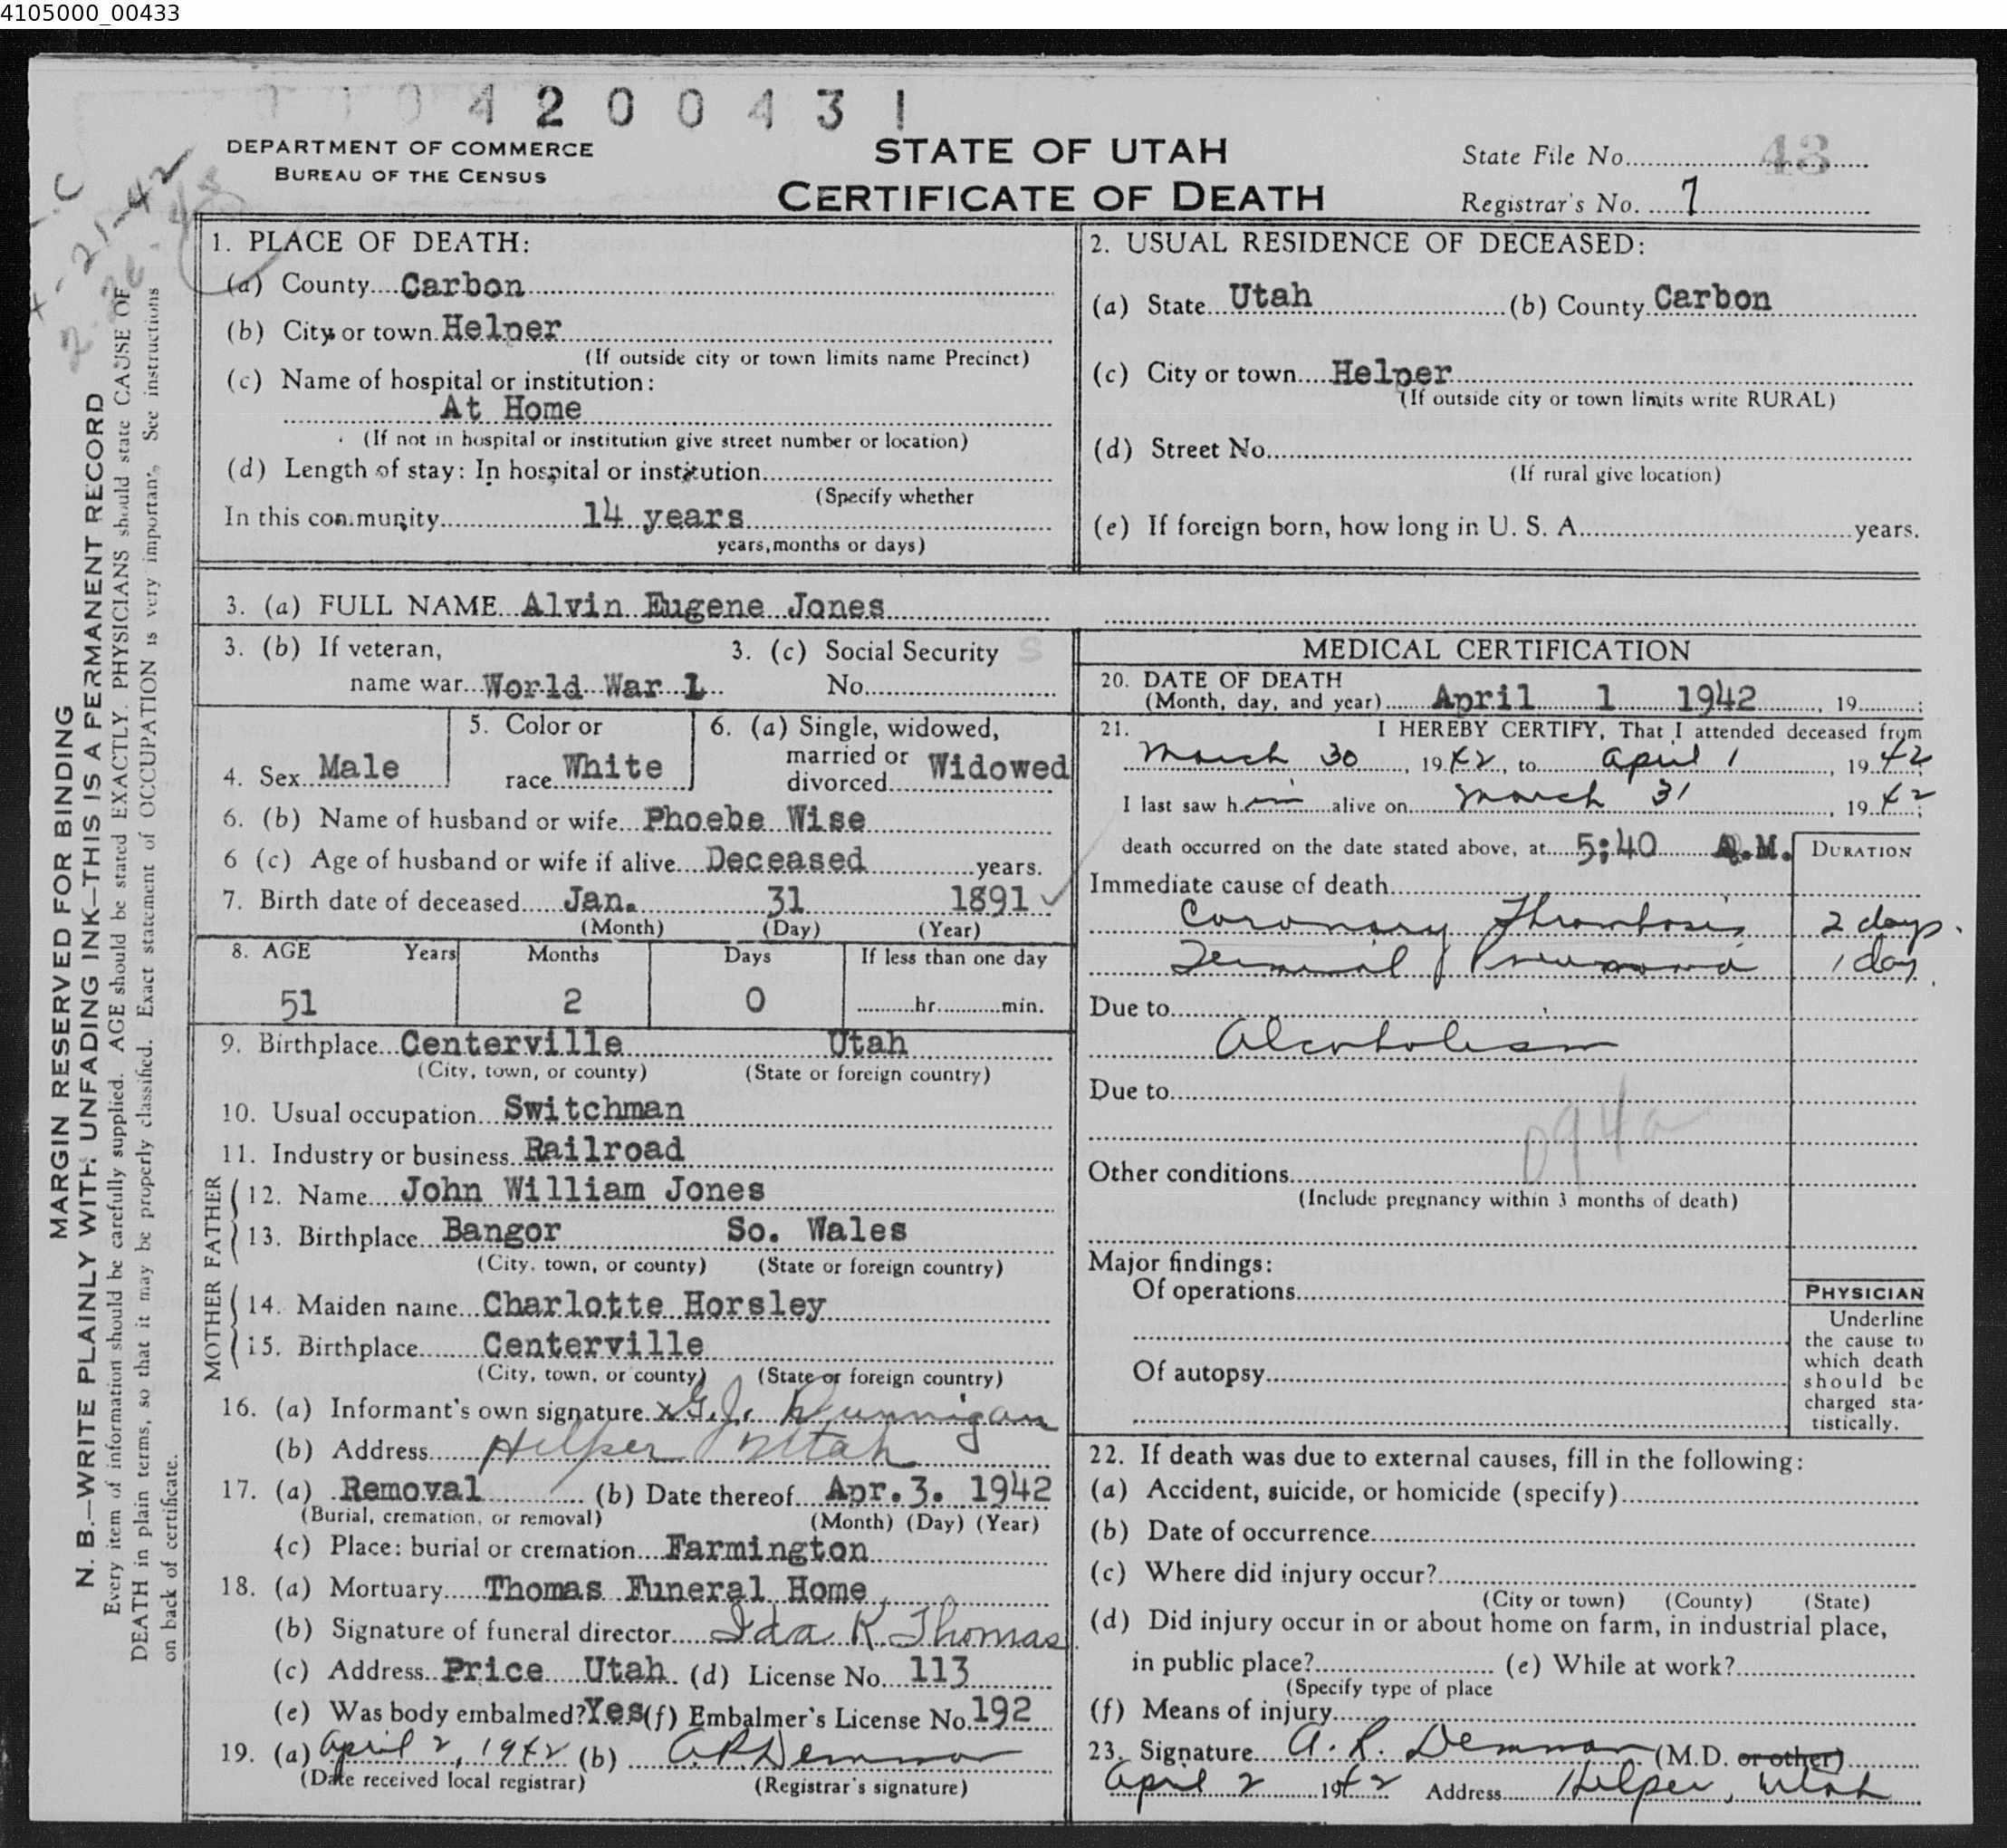 4105000_00433
4 2 0 0 4 3 1
DEPARTMENT OF COMMERCE
BUREAU OF THE CENSUS
STATE OF UTAH
CERTIFICATE OF DEATH
State File No. 43
Registrar's No. 7
MARGIN RESERVED FOR BINDING
N. B.—WRITE PLAINLY WITH UNFADING INK—THIS IS A PERMANENT RECORD
Every item of information should be carefully supplied. AGE should be stated EXACTLY. PHYSICIANS should state CAUSE OF
DEATH in plain terms, so that it may be properly classified. Exact statement of OCCUPATION is very important. See instructions
on back of certificate.
1. PLACE OF DEATH:
(a) County Carbon
(b) City or town Helper
(If outside city or town limits name Precinct)
(c) Name of hospital or institution:
At Home
(If not in hospital or institution give street number or location)
(d) Length of stay: In hospital or institution
(Specify whether
In this community 14 years
years, months or days)
2. USUAL RESIDENCE OF DECEASED:
(a) State Utah (b) County Carbon
(c) City or town Helper
(If outside city or town limits write RURAL)
(d) Street No.
(If rural give location)
(e) If foreign born, how long in U. S. A. years.
3. (a) FULL NAME Alvin Eugene Jones
3. (b) If veteran, 3. (c) Social Security S
name war World War I No.
4. Sex Male
5. Color or
race White
6. (a) Single, widowed,
married or
divorced Widowed
6. (b) Name of husband or wife Phoebe Wise
6 (c) Age of husband or wife if alive Deceased years.
7. Birth date of deceased Jan. 31 1891
(Month) (Day) (Year)
8. AGE Years Months Days If less than one day
51 2 0 hr. min.
9. Birthplace Centerville Utah
(City, town, or county) (State or foreign country)
10. Usual occupation Switchman
11. Industry or business Railroad
FATHER
12. Name John William Jones
13. Birthplace Bangor So. Wales
(City, town, or county) (State or foreign country)
MOTHER
14. Maiden name Charlotte Horsley
15. Birthplace Centerville
(City, town, or county) (State or foreign country)
16. (a) Informant's own signature x G.J. Dunnigan
(b) Address Helper Utah
17. (a) Removal (b) Date thereof Apr. 3. 1942
(Burial, cremation, or removal) (Month) (Day) (Year)
(c) Place: burial or cremation Farmington
18. (a) Mortuary Thomas Funeral Home
(b) Signature of funeral director Ida K Thomas
(c) Address Price Utah (d) License No. 113
(e) Was body embalmed? Yes (f) Embalmer's License No. 192
19. (a) April 2, 1942 (b) A R Demman
(Date received local registrar) (Registrar's signature)
MEDICAL CERTIFICATION
20. DATE OF DEATH
(Month, day, and year) April 1 1942, 19 ;
21. I HEREBY CERTIFY, That I attended deceased from
March 30, 1942, to April 1, 1942;
I last saw him alive on March 31, 1942;
death occurred on the date stated above, at 5:40 A.M.
DURATION
Immediate cause of death
Coronary Thrombosis 2 days.
Terminal Pneumonia 1 day.
Due to
Alcoholism
Due to
094a
Other conditions
(Include pregnancy within 3 months of death)
Major findings:
Of operations
Of autopsy
PHYSICIAN
Underline
the cause to
which death
should be
charged sta-
tistically.
22. If death was due to external causes, fill in the following:
(a) Accident, suicide, or homicide (specify)
(b) Date of occurrence
(c) Where did injury occur?
(City or town) (County) (State)
(d) Did injury occur in or about home on farm, in industrial place,
in public place? (e) While at work?
(Specify type of place
(f) Means of injury
23. Signature A. R. Demman (M.D. or other)
April 2 1942 Address Helper, Utah